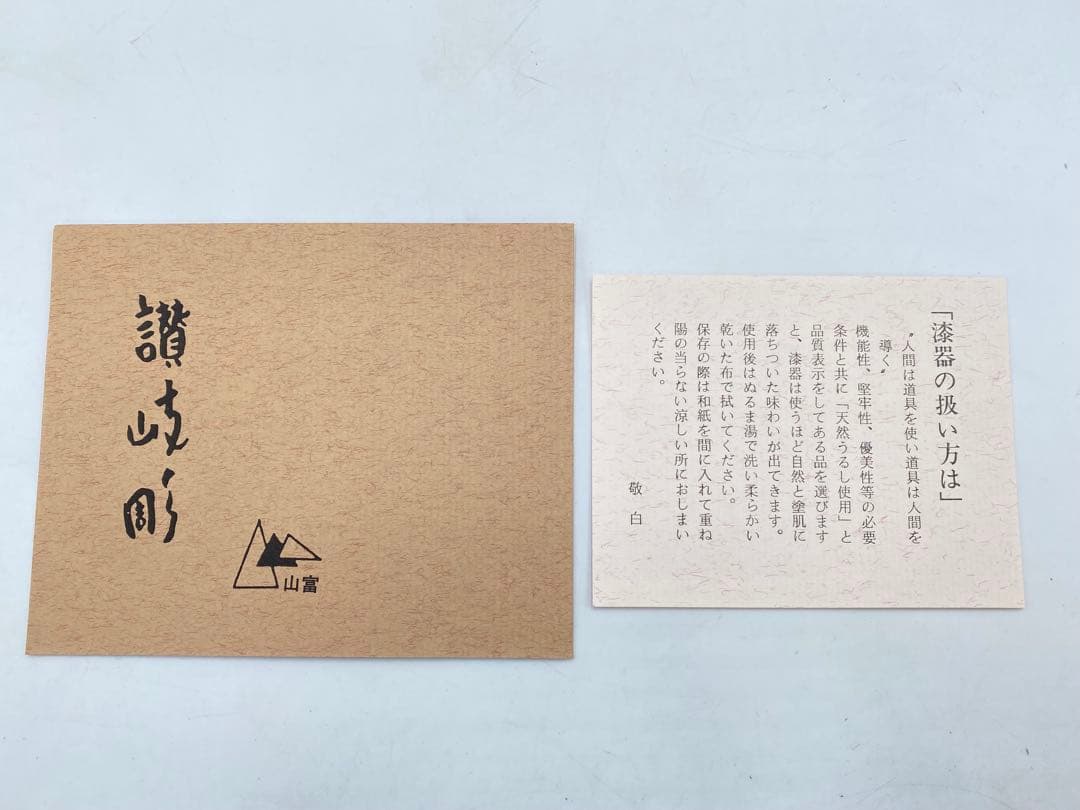 讃岐彫
山富
「漆器の扱い方は」
〝人間は道具を使い道具は人間を
導く〟
機能性、堅牢性、優美性等の必要
条件と共に「天然うるし使用」と
品質表示をしてある品を選びます
と、漆器は使うほど自然と塗肌に
落ちついた味わいが出てきます。
使用後はぬるま湯で洗い柔らかい
乾いた布で拭いてください。
保存の際は和紙を間に入れて重ね
陽の当らない涼しい所におしまい
ください。
敬白